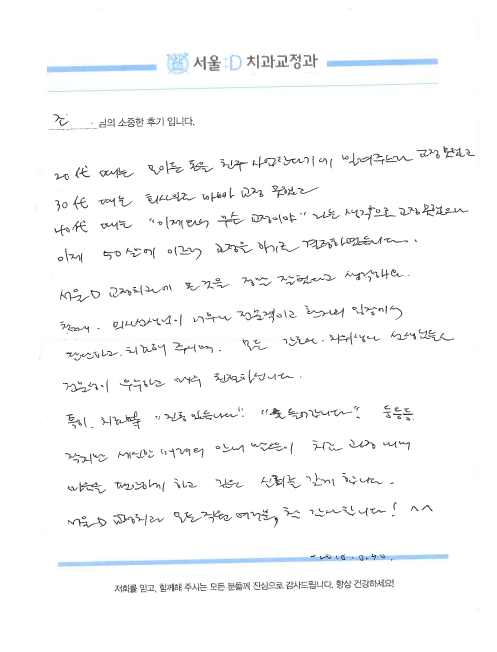 서울:D 치과교정과
조 님의 소중한 후기 입니다.
20代 때는 모아둔 돈을 친구 사업한다기에 빌려주느라 교정 못했고
30代 때는 회사일로 바빠 교정 못했고
40代 때는 "이제와서 무슨 교정이야" 라는 생각으로 교정 못했으나
이제 50살에 이르러 교정을 하기로 결정하였습니다.
서울D 교정치과에 온 것을 정말 잘했다고 생각해요.
첫째. 의사선생님이 너무나 전문적이고 환자의 입장에서
판단하고. 치료해 주시며. 모든 간호사. 위생사 선생님들도
전문성이 우수하고 매우 친절하십니다.
특히. 치료때 "진동 있습니다" "물 들어갑니다" 등등등
작지만 세심한 배려의 안내 말씀이 치료 과정 내내
마음을 편안하게 하고 깊은 신뢰를 갖게 합니다.
서울D 교정치과 모든 직원 여러분, 참 감사합니다! ^^
저희를 믿고, 함께해 주시는 모든 분들께 진심으로 감사드립니다. 항상 건강하세요!